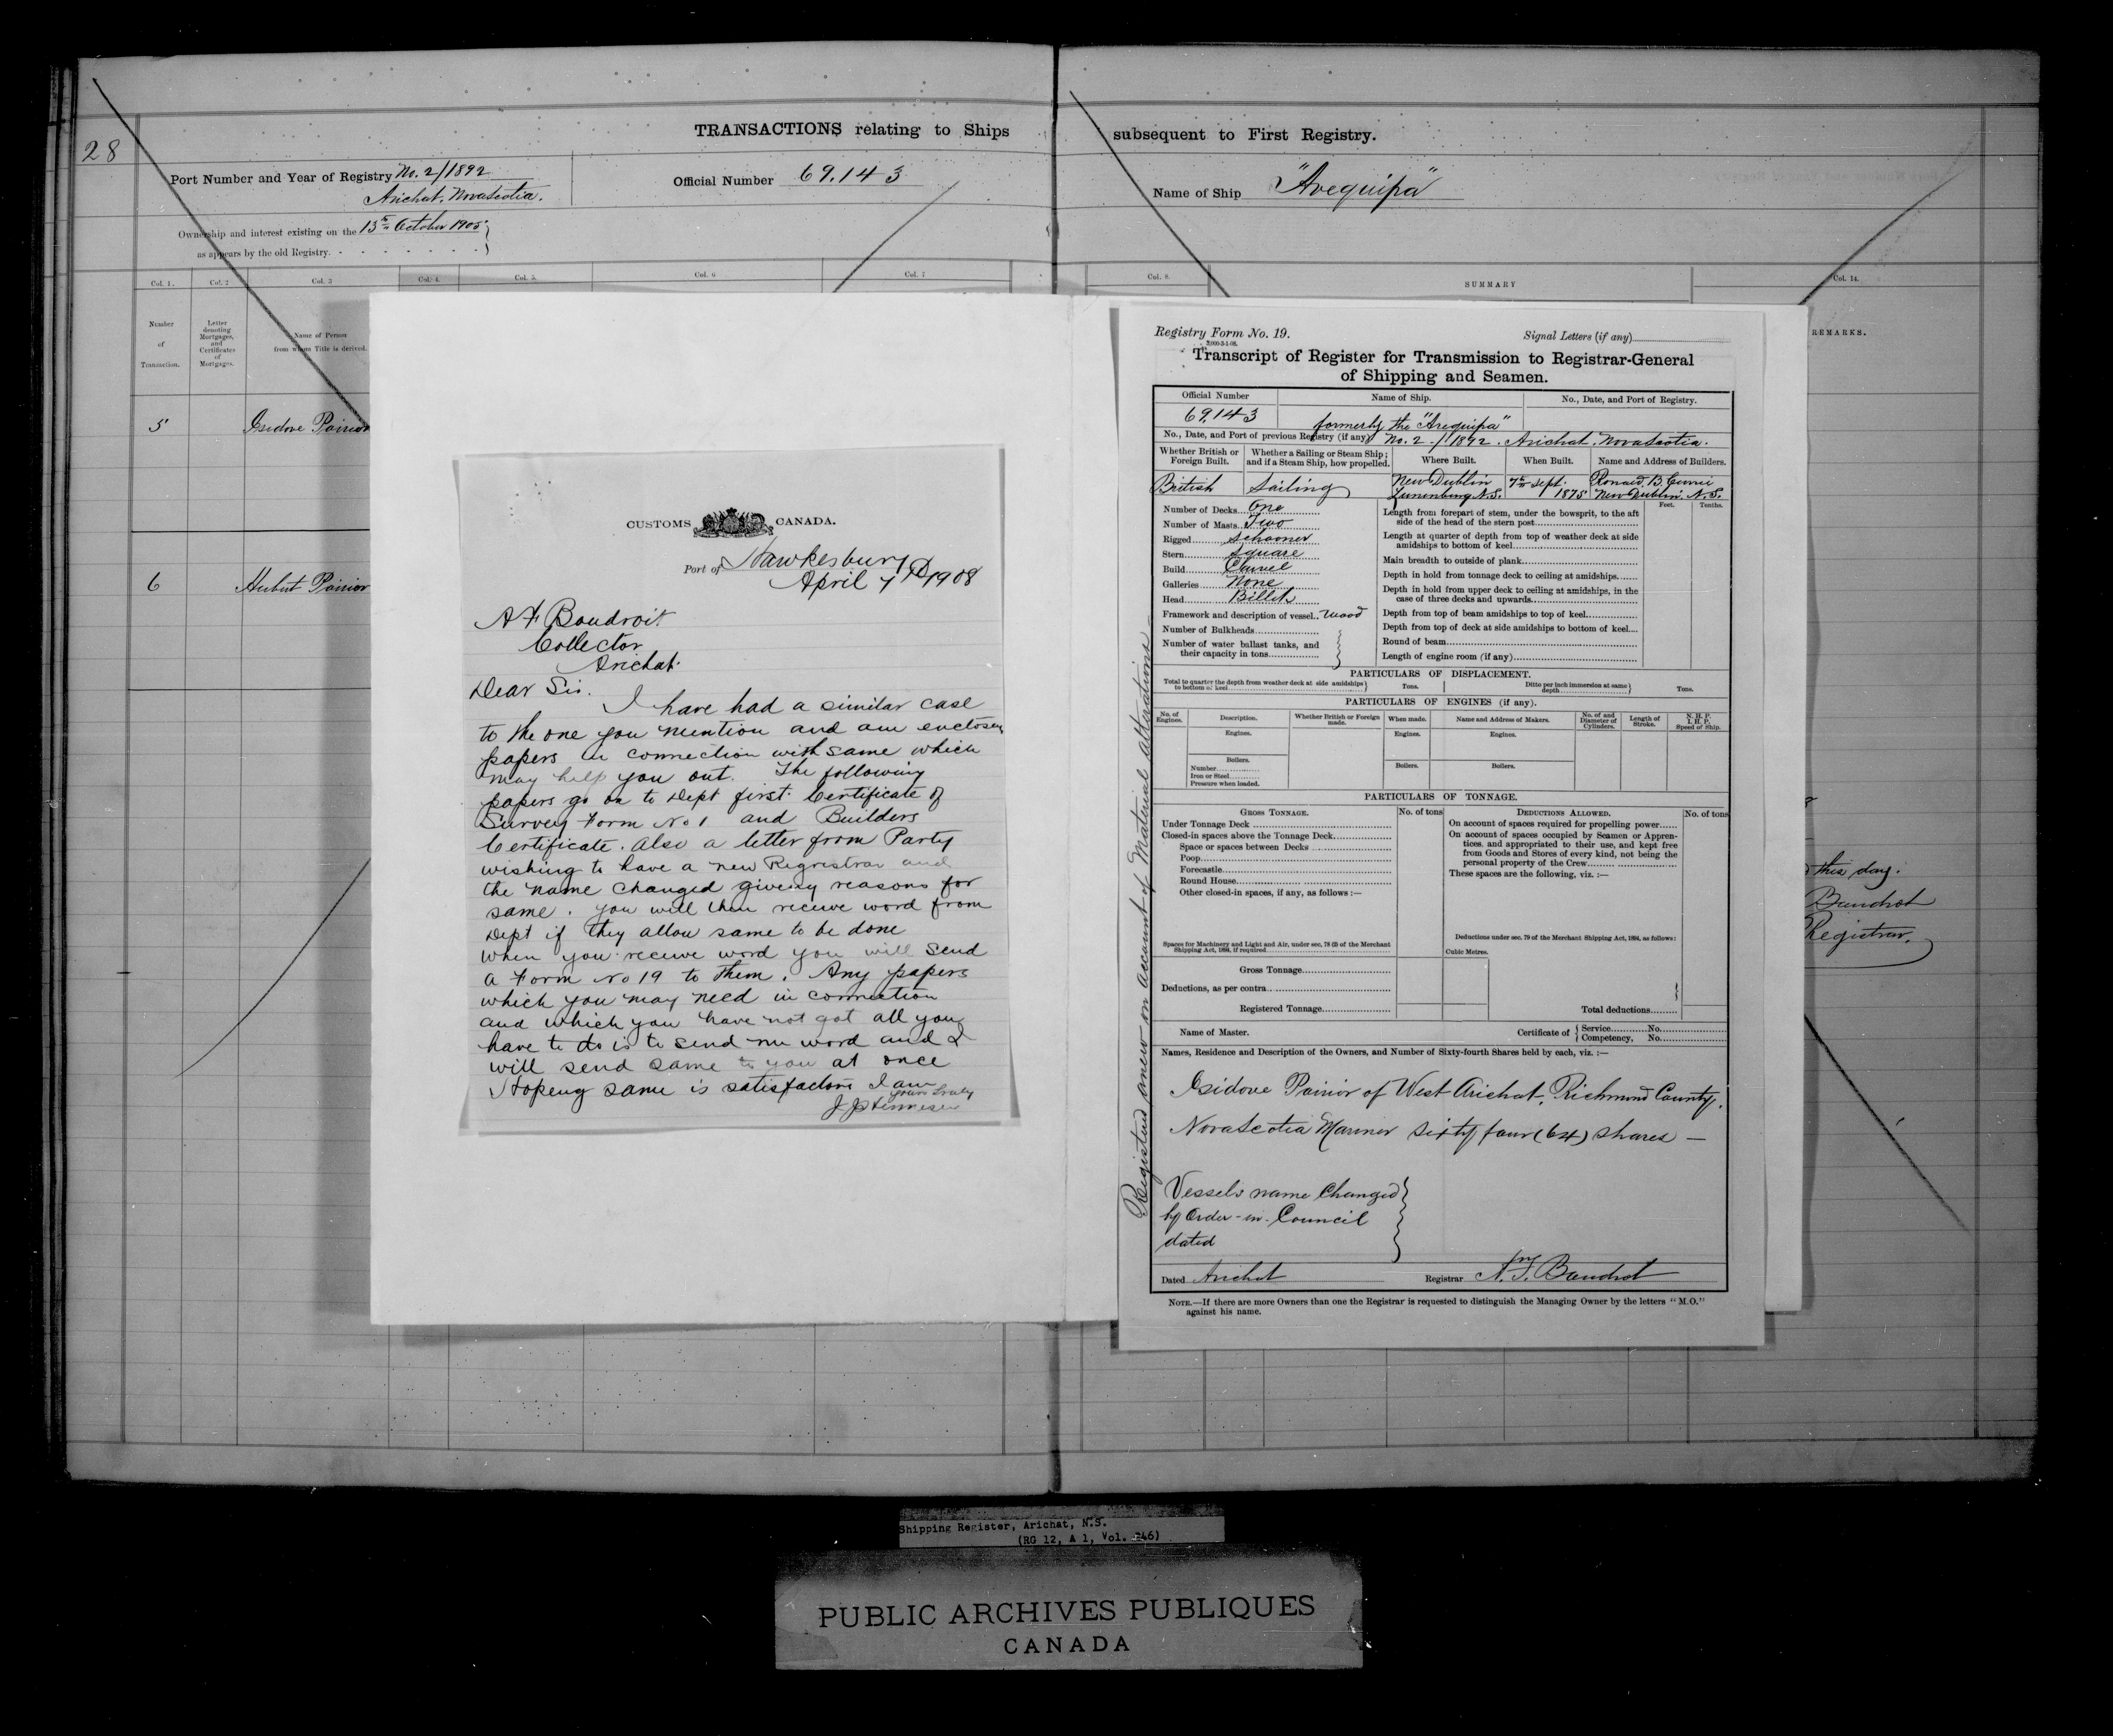 28
TRANSACTIONS relating to Ships subsequent to First Registry.
Port Number and Year of Registry No. 2/1892
Arichat. Nova Scotia.
Official Number 69.143
Name of Ship "Arequipa"
Ownership and interest existing on the 13th October 1905
as appears by the old Registry.
Col. 1. Col. 2 Col. 3 Col. 4. Col. 5. Col. 6 Col. 7 Col. 8. SUMMARY Col. 14.
Number of Transaction.
Letter denoting Mortgages, and Certificates of Mortgages.
Name of Person from whom Title is derived.
REMARKS.
5 Isidore Poirier
6 Hubert Poirier
this day.
Boudrot
Registrar.
CUSTOMS CANADA.
Port of Hawkesbury
April 7th 1908
A F Boudroit
Collector
Arichat.
Dear Sir.
I have had a similar case
to the one you mention and am enclosen
papers in connection with same which
may help you out. The following
papers go on to Dept first. Certificate of
Survey Form No 1 and Builders
Certificate. Also a letter from Party
wishing to have a new Regrestrar and
the name changed giveing reasons for
same. You will then receive word from
Dept if they allow same to be done
When you receive word you will send
a Form No 19 to them. Any papers
which you may need in connection
and which you have not got all you
have to do is to send me word and I
will send same to you at once
Hopeng same is satisfactore I am
yours truly
Registry Form No. 19.
Signal Letters (if any)
Transcript of Register for Transmission to Registrar-General
of Shipping and Seamen.
Official Number Name of Ship. No., Date, and Port of Registry.
69.143 formerly the "Arequipa"
No., Date, and Port of previous Registry (if any) No. 2./1892. Arichat. Nova Scotia.
Whether British or Foreign Built.
Whether a Sailing or Steam Ship; and if a Steam Ship, how propelled.
Where Built.
When Built.
Name and Address of Builders.
British
Sailing
New Dublin
Lunenburg N.S.
7th Sept.
1875
Ronald B. Currie
New Dublin. N.S.
Number of Decks One
Number of Masts Two
Rigged Schooner
Stern Square
Build Carvel
Galleries None
Head Billet
Framework and description of vessel Wood
Number of Bulkheads
Number of water ballast tanks, and
their capacity in tons
Feet. Tenths.
Length from forepart of stem, under the bowsprit, to the aft
side of the head of the stern post
Length at quarter of depth from top of weather deck at side
amidships to bottom of keel
Main breadth to outside of plank
Depth in hold from tonnage deck to ceiling at amidships
Depth in hold from upper deck to ceiling at amidships, in the
case of three decks and upwards
Depth from top of beam amidships to top of keel
Depth from top of deck at side amidships to bottom of keel
Round of beam
Length of engine room (if any)
PARTICULARS OF DISPLACEMENT.
Total to quarter the depth from weather deck at side amidships
to bottom of keel
Tons.
Ditto per inch immersion at same
depth
Tons.
PARTICULARS OF ENGINES (if any).
No. of Engines.
Description.
Whether British or Foreign made.
When made.
Name and Address of Makers.
No. of and Diameter of Cylinders.
Length of Stroke.
N. H. P.
I. H. P.
Speed of Ship.
Engines. Engines. Engines.
Boilers. Boilers. Boilers.
Number
Iron or Steel
Pressure when loaded.
PARTICULARS OF TONNAGE.
GROSS TONNAGE. No. of tons
DEDUCTIONS ALLOWED. No. of tons
Under Tonnage Deck
Closed-in spaces above the Tonnage Deck
Space or spaces between Decks
Poop
Forecastle
Round House
Other closed-in spaces, if any, as follows :—
Spaces for Machinery and Light and Air, under sec. 78 (2) of the Merchant
Shipping Act, 1894, if required
Gross Tonnage
Deductions, as per contra
Registered Tonnage
On account of spaces required for propelling power
On account of spaces occupied by Seamen or Appren-
tices, and appropriated to their use, and kept free
from Goods and Stores of every kind, not being the
personal property of the Crew
These spaces are the following, viz. :—
Deductions under sec. 79 of the Merchant Shipping Act, 1894, as follows:
Cubic Metres.
Total deductions
Name of Master.
Certificate of
Service No.
Competency, No.
Names, Residence and Description of the Owners, and Number of Sixty-fourth Shares held by each, viz. :—
Isidore Poirier of West Arichat, Richmond County,
Nova Scotia Mariner Sixty four (64) shares —
Vessels name Changed
by Order-in-Council
dated
Dated Arichat
Registrar A. F. Boudrot
NOTE.—If there are more Owners than one the Registrar is requested to distinguish the Managing Owner by the letters "M.O."
against his name.
Registered anew on account of Material alterations—
Shipping Register, Arichat, N.S.
PUBLIC ARCHIVES PUBLIQUES
CANADA